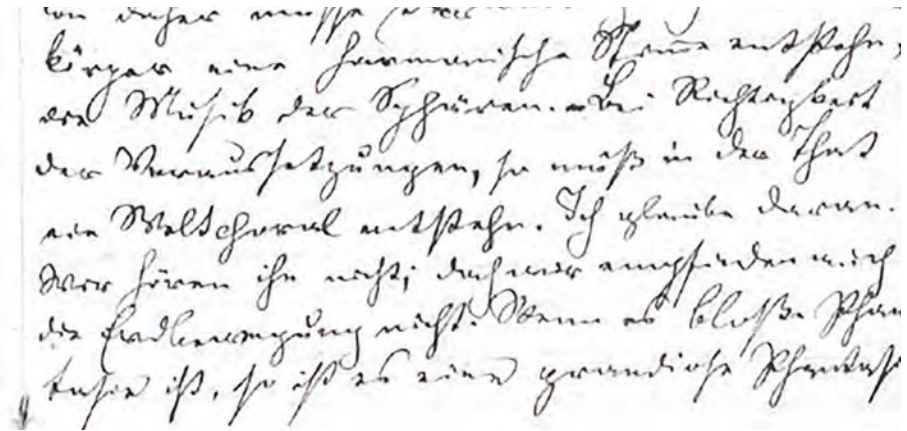 von daher müsse
körper eine harmonische Stimme entstehn,
die Musik der Sphären. – Bei Richtigkeit
der Voraussetzungen, so muß in der That
ein Weltchoral entstehn. Ich glaube daran.
Wir hören ihn nicht; doch wir empfinden auch
die Erdbewegung nicht. Wenn es bloße Phan
tasie ist, so ist es eine grandiose Phantasi